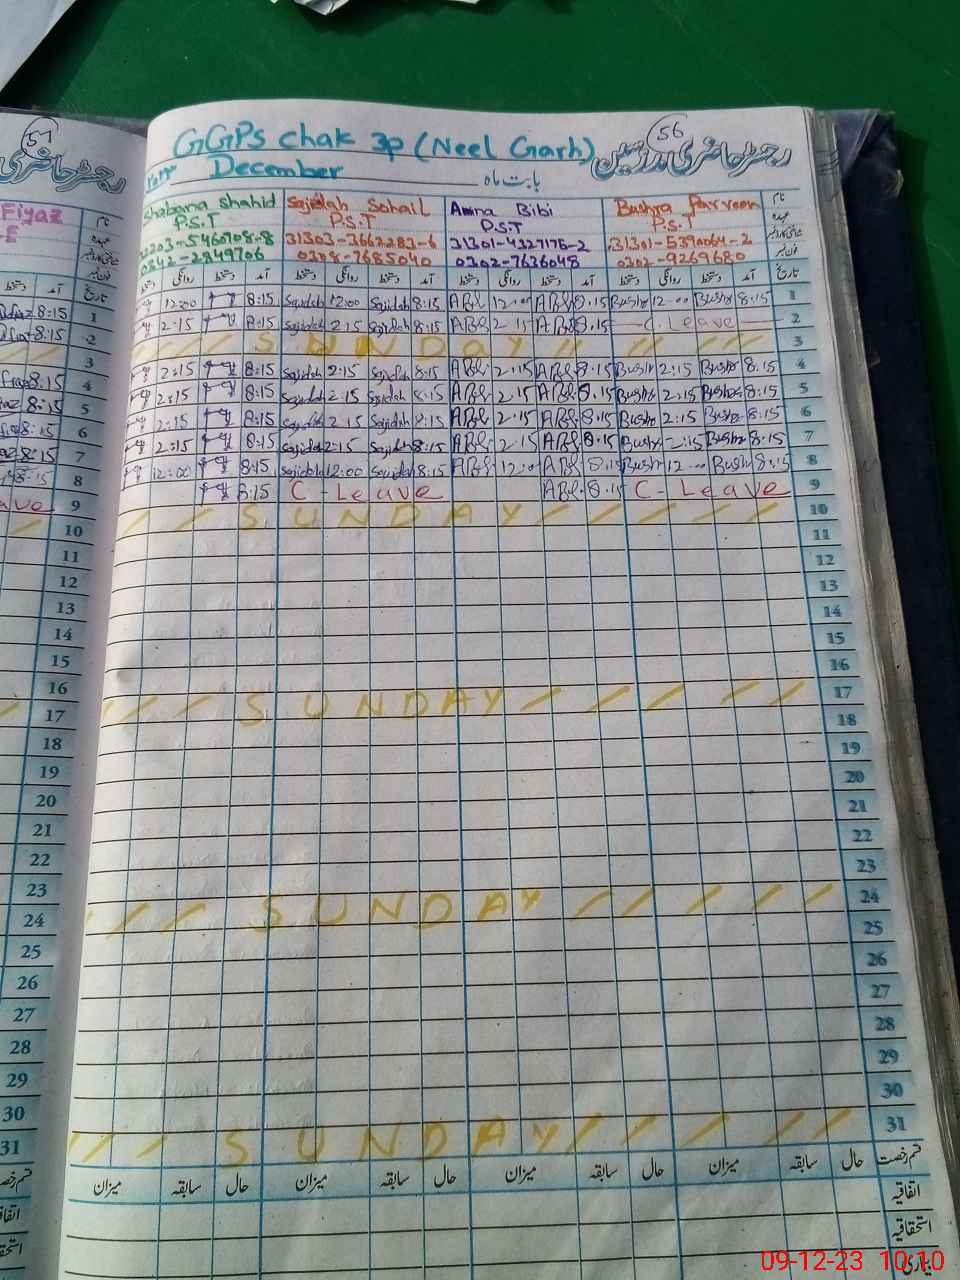 GGPs Chak 3p (Neel Garh) 56 رجسٹر حاضری مدرسین
December بابت ماہ
Shabana Shahid Sajidah Sohail Amna Bibi Bushra Parveen نام
P.S.T P.S.T P.S.T P.S.T عہدہ
31303-3662283-6 31301-4327176-2 31301-5390064-2
0342-2849706 0328-7685040 0302-7636048 0302-9269680 فون نمبر
دستخط روانگی دستخط آمد دستخط روانگی دستخط آمد دستخط روانگی دستخط آمد دستخط روانگی دستخط آمد تاریخ
12:00 8:15 Sajidah 12:00 Sajidah 8:15 12:00 8:15 Bushra 12:00 Bushra 8:15 1
2:15 8:15 Sajidah 2:15 Sajidah 8:15 2:15 8:15 C. Leave 2
SUNDAY 3
2:15 8:15 Sajidah 2:15 Sajidah 8:15 2:15 8:15 Bushra 2:15 Bushra 8:15 4
2:15 8:15 Sajidah 2:15 Sajidah 8:15 2:15 8:15 Bushra 2:15 Bushra 8:15 5
2:15 8:15 Sajidah 2:15 Sajidah 8:15 2:15 8:15 Bushra 2:15 Bushra 8:15 6
2:15 8:15 Sajidah 2:15 Sajidah 8:15 2:15 8:15 Bushra 2:15 Bushra 8:15 7
12:00 8:15 Sajidah 12:00 Sajidah 8:15 12:00 8:15 Bushra 12:00 Bushra 8:15 8
8:15 C - Leave 8:15 C - Leave 9
SUNDAY 10
11
12
13
14
15
16
SUNDAY 17
18
19
20
21
22
23
SUNDAY 24
25
26
27
28
29
30
SUNDAY 31
میزان سابقہ حال میزان سابقہ حال میزان سابقہ حال میزان سابقہ حال قسم رخصت
اتفاقیہ
استحقاقیہ
بیماری
51
رجسٹر حاضری
Fiyaz نام
عہدہ
دستخط آمد تاریخ
8:15 1
8:15 2
3
8:15 4
8:15 5
8:15 6
8:15 7
8:15 8
ave 9
10
11
12
13
14
15
16
17
18
19
20
21
22
23
24
25
26
27
28
29
30
31
09-12-23 10:10